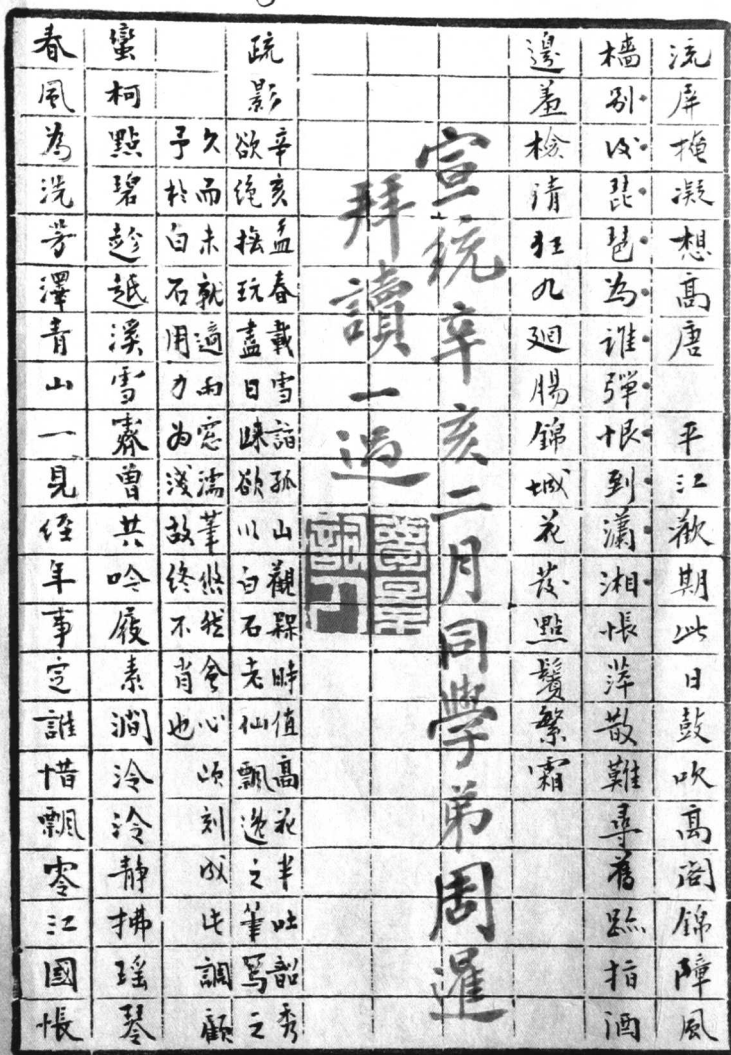 流屏掩凝想高唐　平江歡期此日鼓吹高閣錦障風
檣別後琵琶為誰彈恨到瀟湘悵萍散難尋舊跡指酒
邊羞檢清狂九廻腸錦城花發點鬢繁霜
宣統辛亥二月同學弟周暹
拜讀一過
疏影
辛亥孟春載雪詣孤山觀槑時值高花半吐韶秀
欲絕撫玩盡日睐欲以白石老仙飄逸之筆寫之
久而未就適雨窓濡筆悠然會心頃刻成此調顧
予於白石用力為淺故終不肖也
蠻柯點碧趁越溪雪霽曾共吟屐素澗泠泠靜拂瑶琴
春風為洗芳澤青山一見經年事定誰惜飄零江國悵